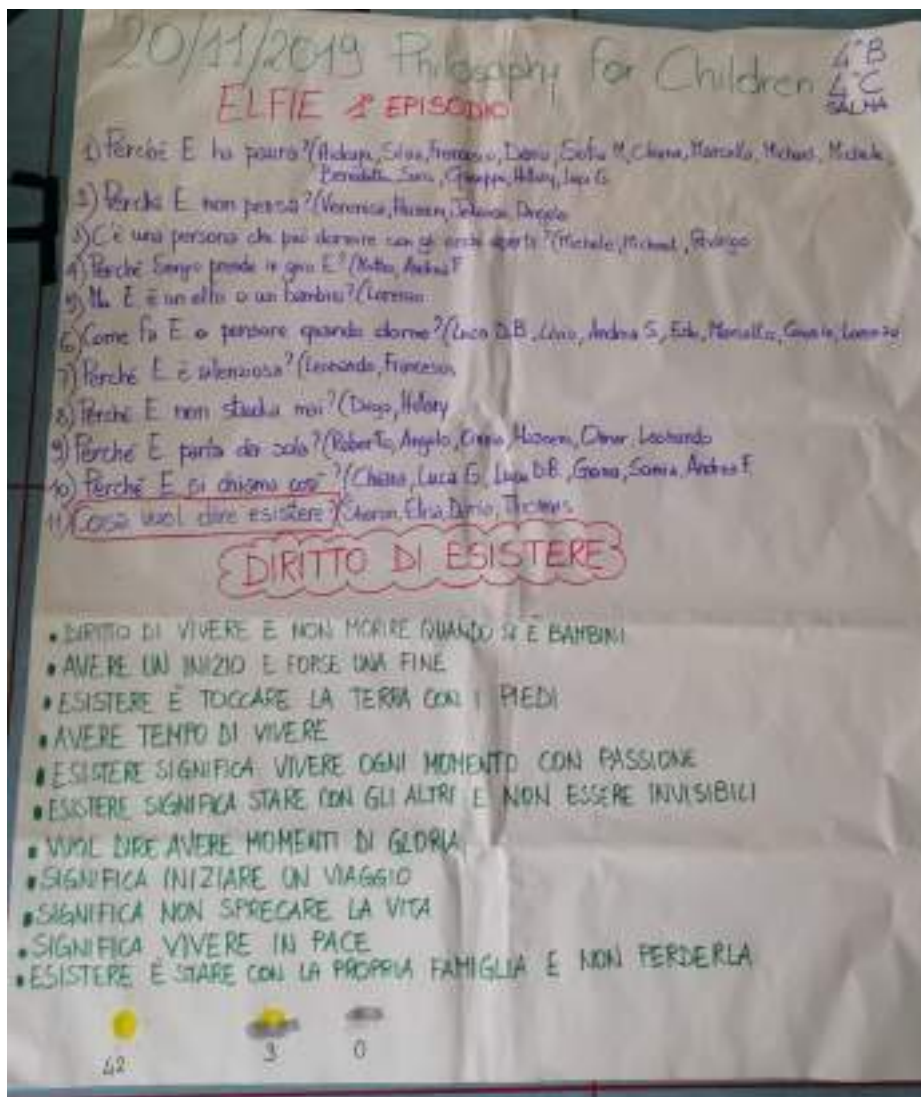 20/11/2019 Philosophy for Children 4°B
4°C
SALMA
ELFIE 1° EPISODIO
1) Perché E ha paura? (Silvia, Francesco, Dario, Sofia M, Chiara, Marcello, Michael, Michele,
Benedetta, Sara, Giuseppe, Hillary, Luca G.
2) Perché E non pensa? (Veronica, Diego
3) C'è una persona che può dormire con gli occhi aperti? (Michele, Michael,
4) Perché prende in giro E? (Mattia, Andrea F
5) Ma E è un elfo o un bambino? (Lorenzo
6) Come fa E a pensare quando dorme? (Luca D.B, Livio, Andrea S, Edo, Marcello, Lorenzo
7) Perché E è silenziosa? (Leonardo, Francesco
8) Perché E non studia mai? (Diego, Hillary
9) Perché E parla da sola? (Roberto, Angelo, Omar, Leonardo
10) Perché E si chiama così? (Chiara, Luca G, Luca D.B, Andrea F.
11) Cosa vuol dire esistere? (Sharon, Elisa, Dario, Thomas
DIRITTO DI ESISTERE
• DIRITTO DI VIVERE E NON MORIRE QUANDO SI È BAMBINI
• AVERE UN INIZIO E FORSE UNA FINE
• ESISTERE È TOCCARE LA TERRA CON I PIEDI
• AVERE TEMPO DI VIVERE
• ESISTERE SIGNIFICA VIVERE OGNI MOMENTO CON PASSIONE
• ESISTERE SIGNIFICA STARE CON GLI ALTRI E NON ESSERE INVISIBILI
• VUOL DIRE AVERE MOMENTI DI GLORIA
• SIGNIFICA INIZIARE UN VIAGGIO
• SIGNIFICA NON SPRECARE LA VITA
• SIGNIFICA VIVERE IN PACE
• ESISTERE È STARE CON LA PROPRIA FAMIGLIA E NON PERDERLA
42 3 0